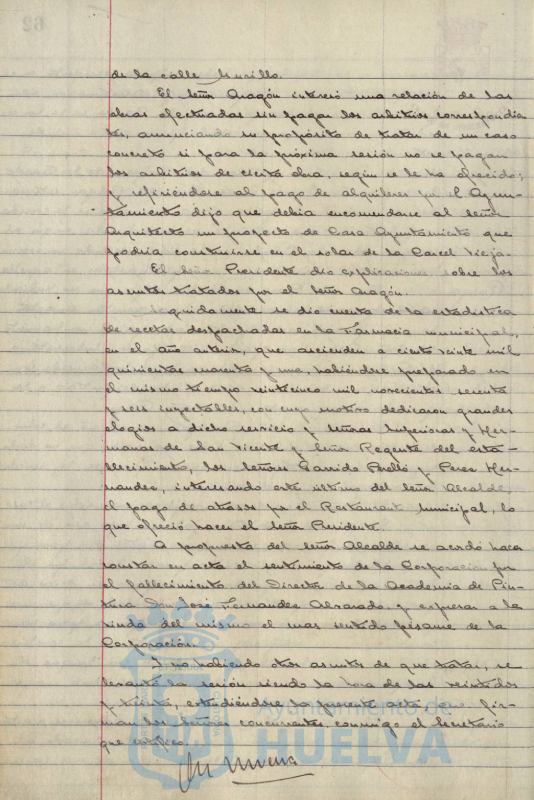 de la calle Murillo.
El Señor Aragón interesó una relación de las
obras efectuadas sin pagar los arbitrios correspondien
tes, anunciando su propósito de tratar de un caso
concreto si para la próxima sesión no se pagan
los arbitrios de cierta obra, según se le ha ofrecido;
y refiriéndose al pago de alquileres por el Ayun-
tamiento dijo que debía encomendarse al Señor
Arquitecto un proyecto de Casa Ayuntamiento que
podría construirse en el solar de la Carcel Vieja.
El Señor Presidente dio explicaciones sobre los
asuntos tratados por el Señor Aragón.
Seguidamente se dio cuenta de la estadistica
de recetas despachadas en la Farmacia municipal,
en el año anterior, que ascienden a ciento veinte mil
quinientas cuarenta y una, habiéndose preparado en
el mismo tiempo veinticinco mil novecientos sesenta
y seis inyectables, con cuyo motivo dedicaron grandes
elogios a dicho servicio y Señoras Superioras y Her-
manas de San Vicente y Señor Regente del esta-
blecimiento, los Señores Garrido Perelló y Perez Her-
nandez, interesando este último del Señor Alcalde,
el pago de atrasos por el Restaurant municipal, lo
que ofreció hacer el Señor Presidente.
A propuesta del Señor Alcalde se acordó hacer
constar en acta el sentimiento de la Corporación por
el fallecimiento del Director de la Academia de Pin-
tura Don José Fernandez Alvarado y expresar a la
viuda del mismo el mas sentido pésame de la
Corporación.
Y no habiendo otros asuntos de que tratar, se
levantó la sesión siendo la hora de las veintidos
y treinta, extendiéndose la presente acta que fir-
man los Señores concurrentes conmigo el Secretario
que certifico.
Ayuntamiento de
HUELVA